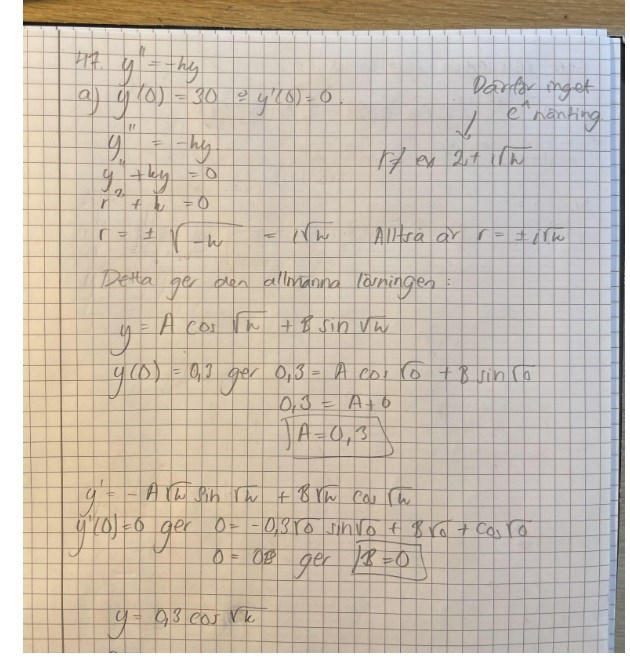 47. y'' = -ky
a) y(0) = 30 = y'(0) = 0.
Därför inget
e^nånting
y'' = -ky
y'' + ky = 0
r ≠ ex 2 + i√k
r² + k = 0
r = ± √-k = i√k Alltså är r = ± i√k
Detta ger den allmänna lösningen:
y = A cos √k + B sin √k
y(0) = 0,3 ger 0,3 = A cos √0 + B sin √0
0,3 = A + 0
A = 0,3
y' = -A√k sin √k + B√k cos √k
y'(0) = 0 ger 0 = -0,3√0 sin√0 + B√0 + cos √0
0 = 0B ger B = 0
y = 0,3 cos √k